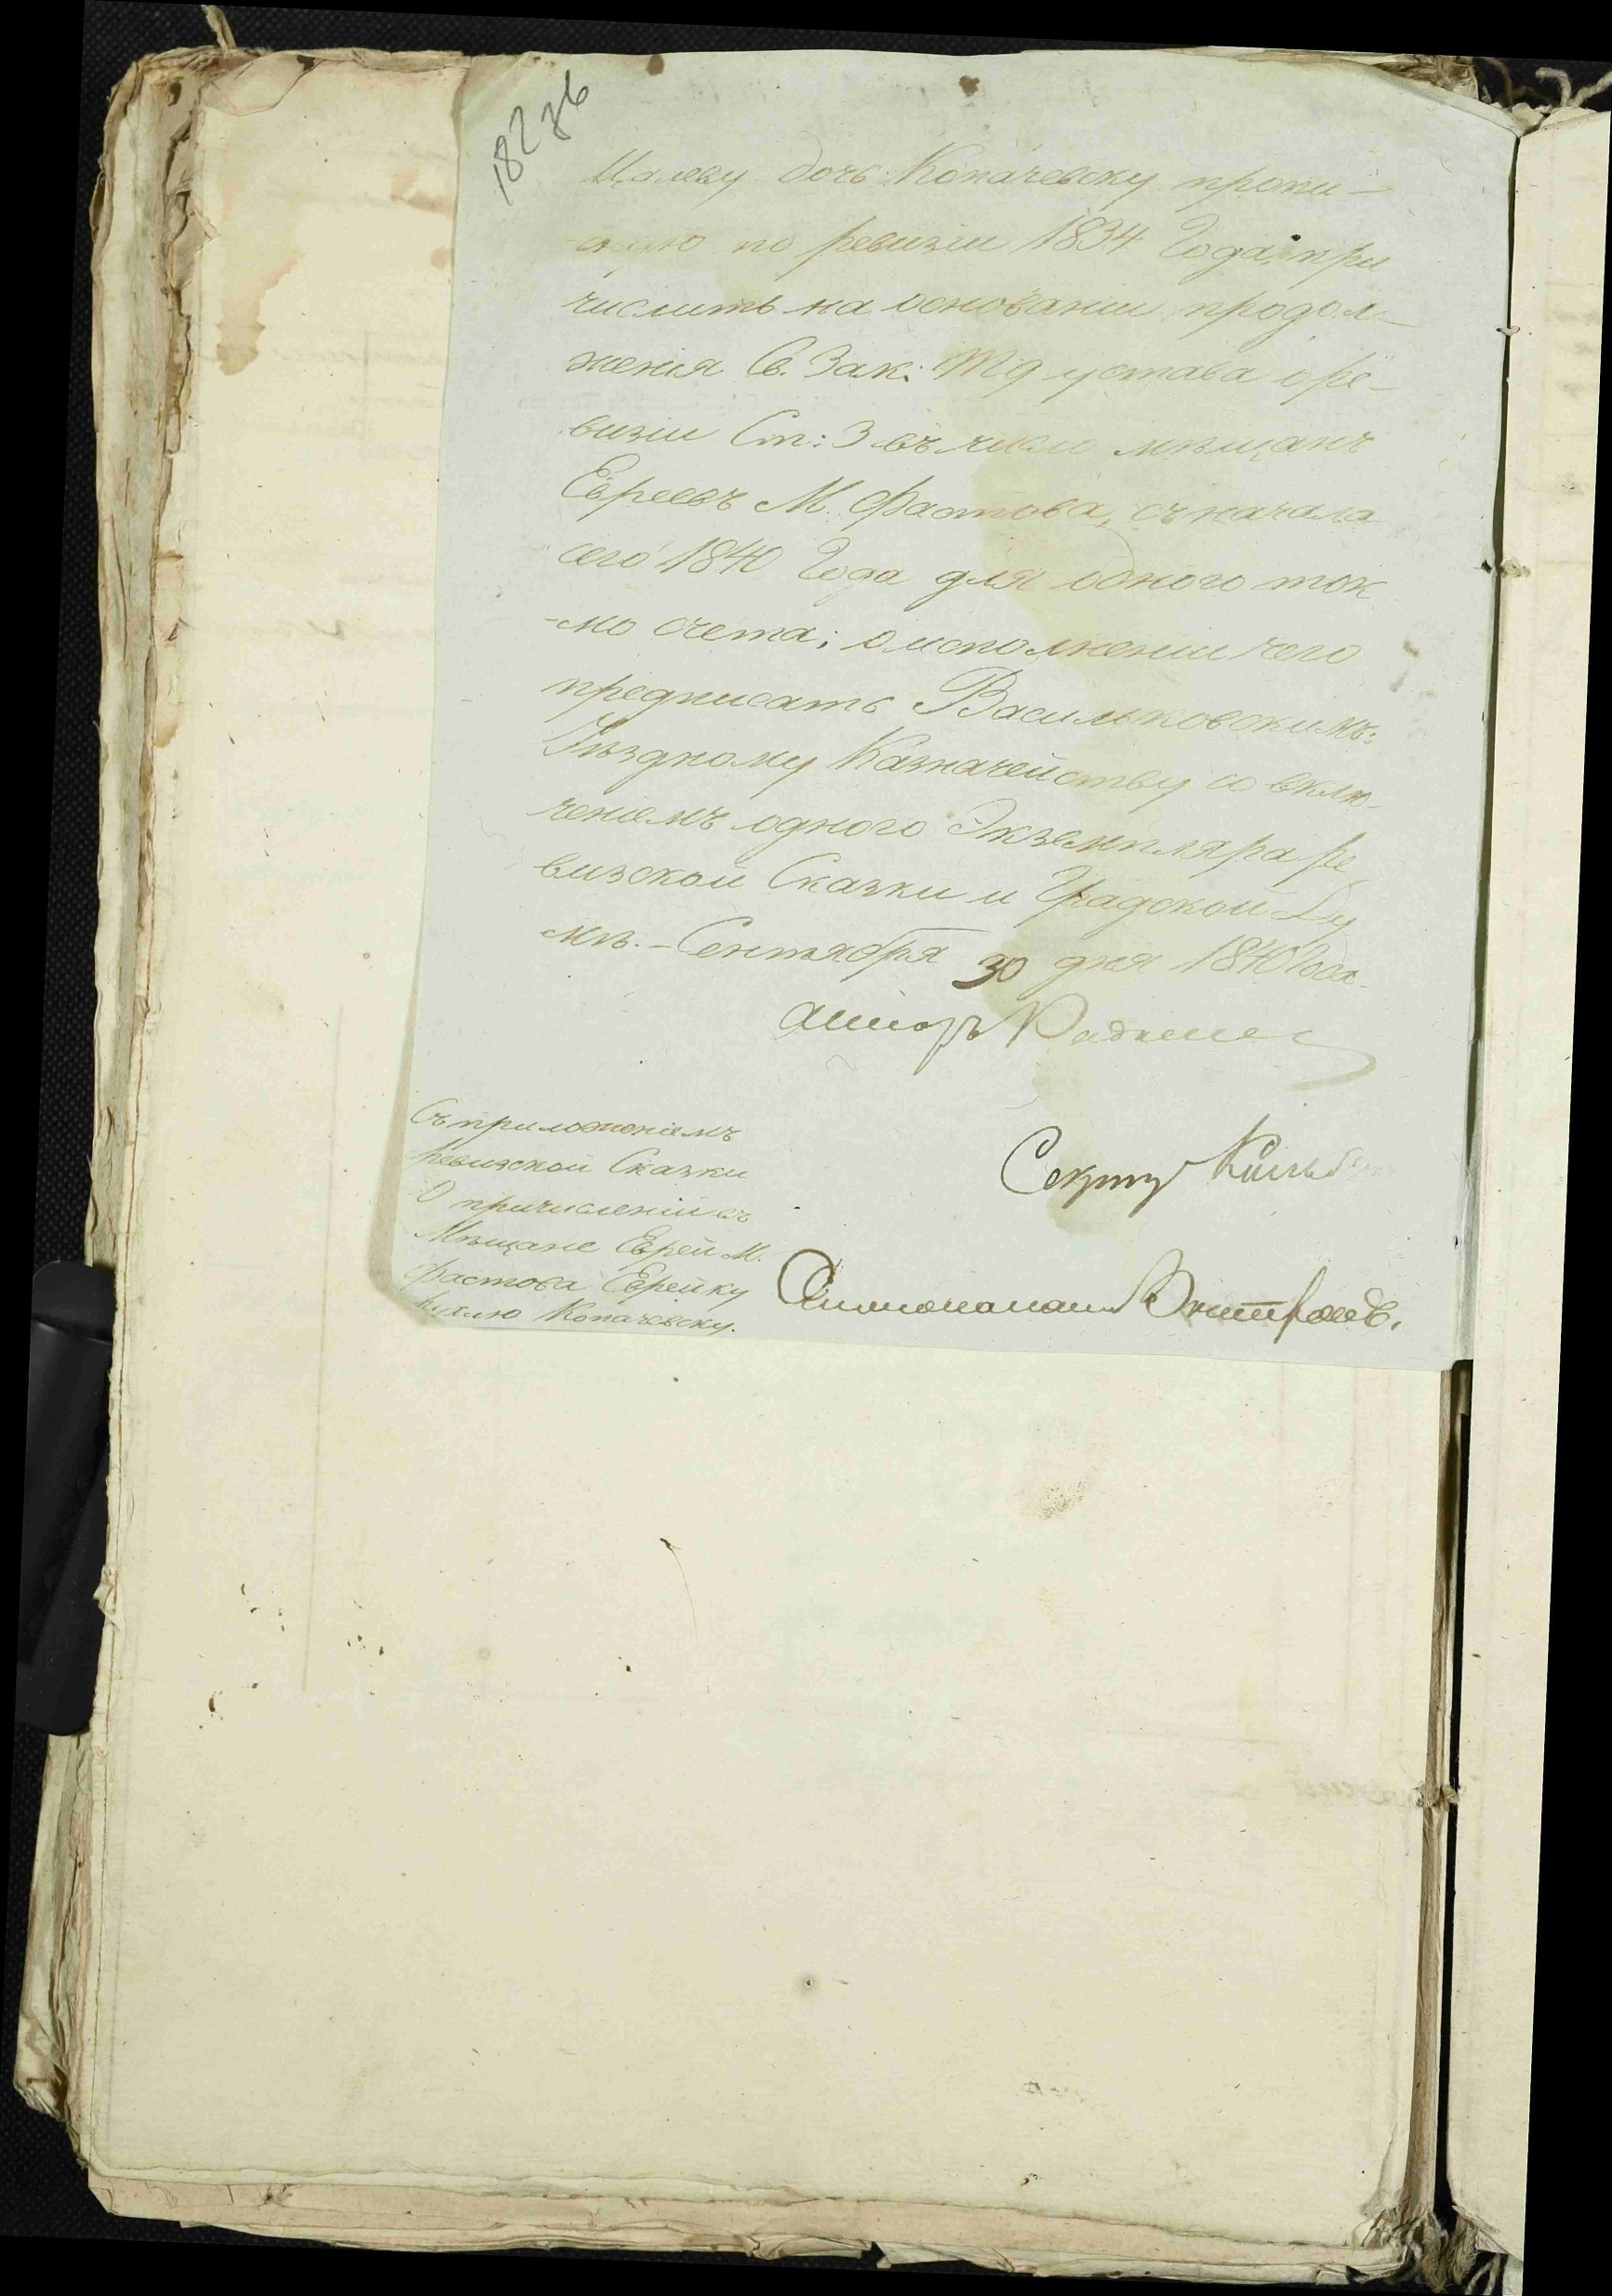 182 зв
Цалеву дочь Копачевску пропи-
сную по ревизіи 1834 Года, при
числить на основаніи продол-
женія Св. Зак: Т 9 устава о ре-
визіи Ст: 3 въ число мѣщанъ
Евреевъ М. Фастова, съ начала
сего 1840 Года для одного ток
-мо счета; о исполненіи чего
предписать Васильковскимъ:
Уѣздному Казначейству со вклю-
ченіемъ одного Экземпляра ре
визской Сказки и Градской Ду
мѣ. - Сентября 30 дня 1840 Года
Съ приложеніемъ
ревизской Сказки
О причисленіи въ
Мѣщане Еврей М.
Фастова Еврейку
Копачевску.
Секрет